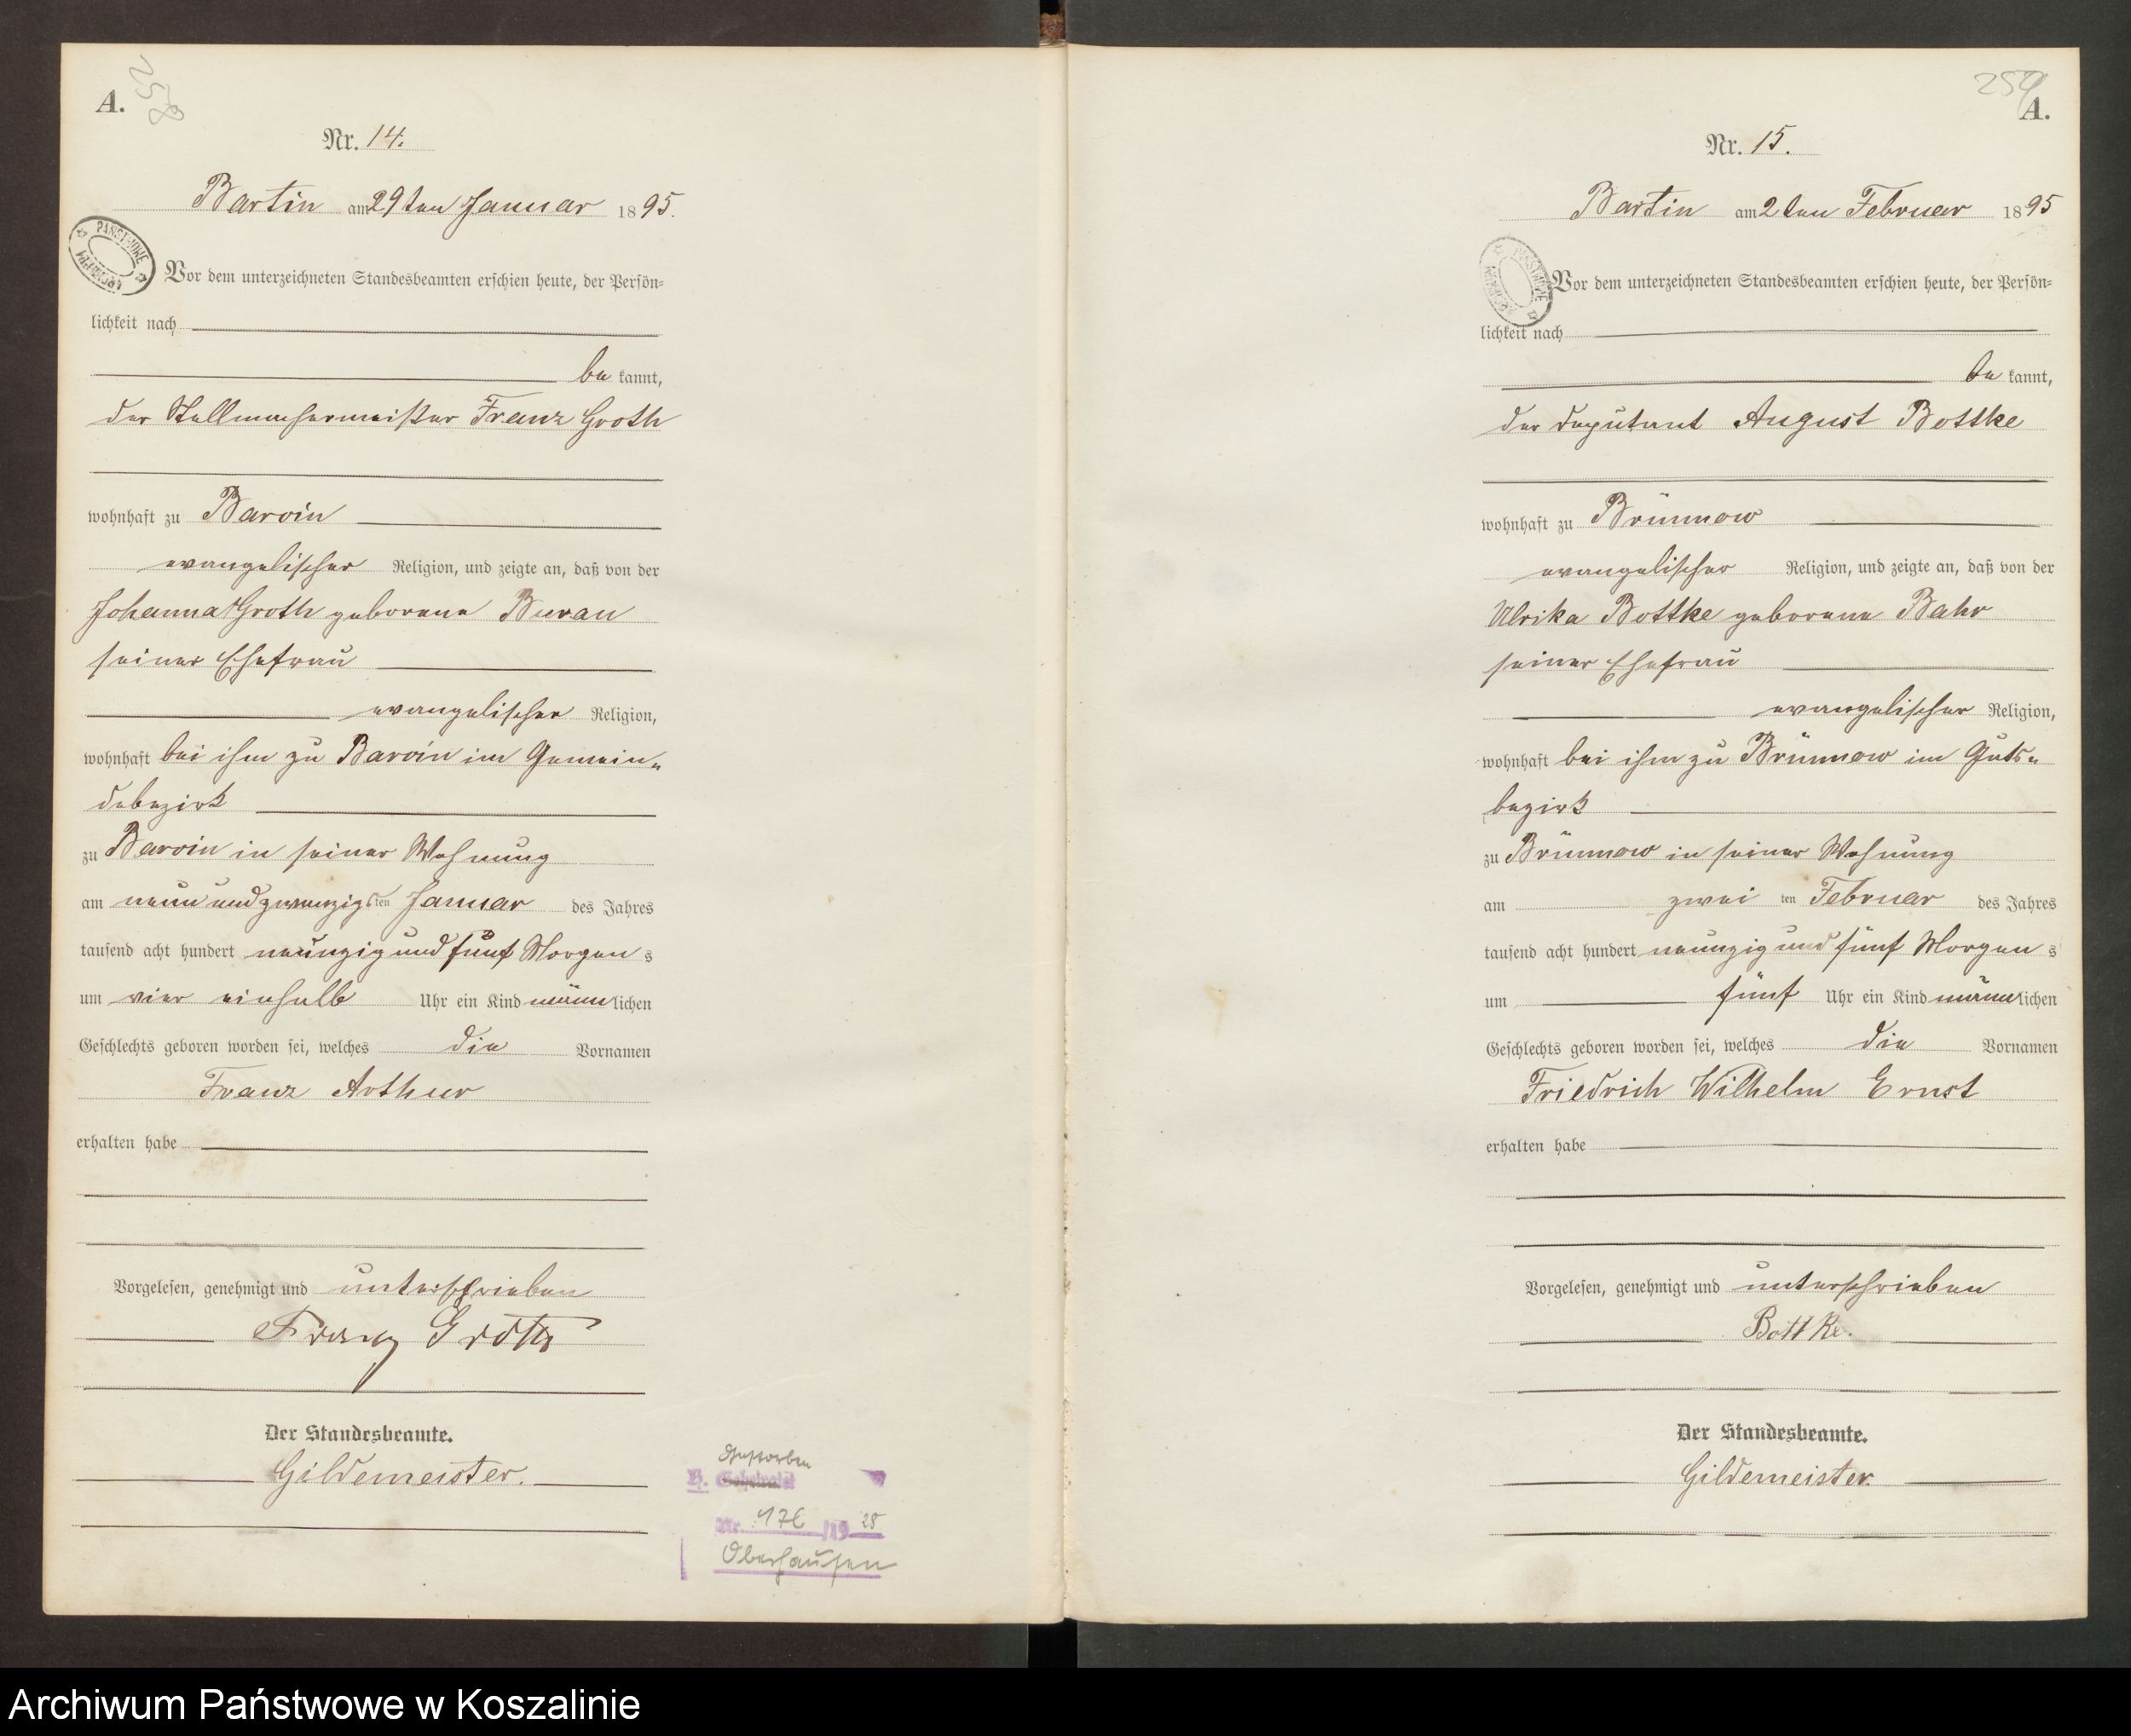 258
A.
Nr. 14.
Bartin am 29ten Januar 1895.
PAŃSTWOWE ARCHIWUM
Vor dem unterzeichneten Standesbeamten erschien heute, der Persön-
lichkeit nach
be kannt,
der Stellmachermeister Franz Groth
wohnhaft zu Barvin
evangelischer Religion, und zeigte an, daß von der
Johanna Groth geborene Buran
seiner Ehefrau
evangelischer Religion,
wohnhaft bei ihm zu Barvin im Gemein-
debezirk
zu Barvin in seiner Wohnung
am neun und zwanzigsten Januar des Jahres
tausend acht hundert neunzig und fünf Morgens
um vier einhalb Uhr ein Kind männlichen
Geschlechts geboren worden sei, welches die Vornamen
Franz Arthur
erhalten habe
Vorgelesen, genehmigt und unterschrieben
Franz Groth
Der Standesbeamte.
Gildemeister.
Gestorben
Nr. 176 /1928
Oberhausen
259
A.
Nr. 15.
Bartin am 2ten Februar 1895
Vor dem unterzeichneten Standesbeamten erschien heute, der Persön-
lichkeit nach
be kannt,
der Deputant August Bottke
wohnhaft zu Brünnow
evangelischer Religion, und zeigte an, daß von der
Ulrika Bottke geborene Bahr
seiner Ehefrau
evangelischer Religion,
wohnhaft bei ihm zu Brünnow im Guts-
bezirk
zu Brünnow in seiner Wohnung
am zwei ten Februar des Jahres
tausend acht hundert neunzig und fünf Morgens
um fünf Uhr ein Kind männlichen
Geschlechts geboren worden sei, welches die Vornamen
Friedrich Wilhelm Ernst
erhalten habe
Vorgelesen, genehmigt und unterschrieben
Bottke.
Der Standesbeamte.
Gildemeister.
Archiwum Państwowe w Koszalinie